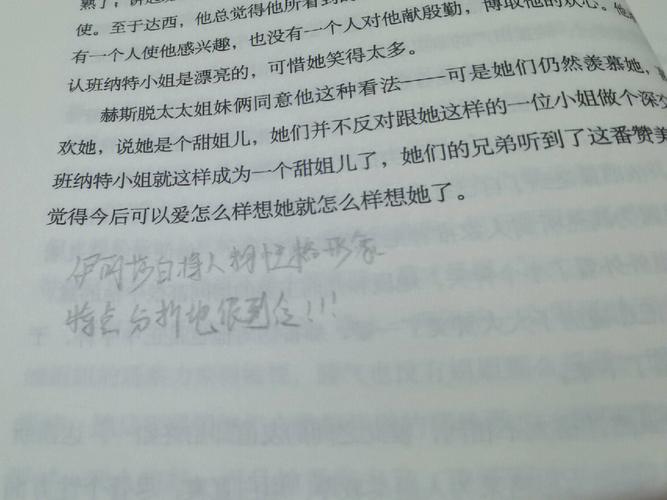 使。至于达西,他总觉得他所看到的
有一个人使他感兴趣,也没有一个人对他献殷勤,博取他的欢心。他
认班纳特小姐是漂亮的,可惜她笑得太多。
赫斯脱太太姐妹俩同意他这种看法——可是她们仍然羡慕她,
欢她,说她是个甜姐儿,她们并不反对跟她这样的一位小姐做个深交
班纳特小姐就这样成为一个甜姐儿了,她们的兄弟听到了这番赞美
觉得今后可以爱怎么样想她就怎么样想她了。
伊丽莎白将人物性格形象
特点分析地很到位!!!